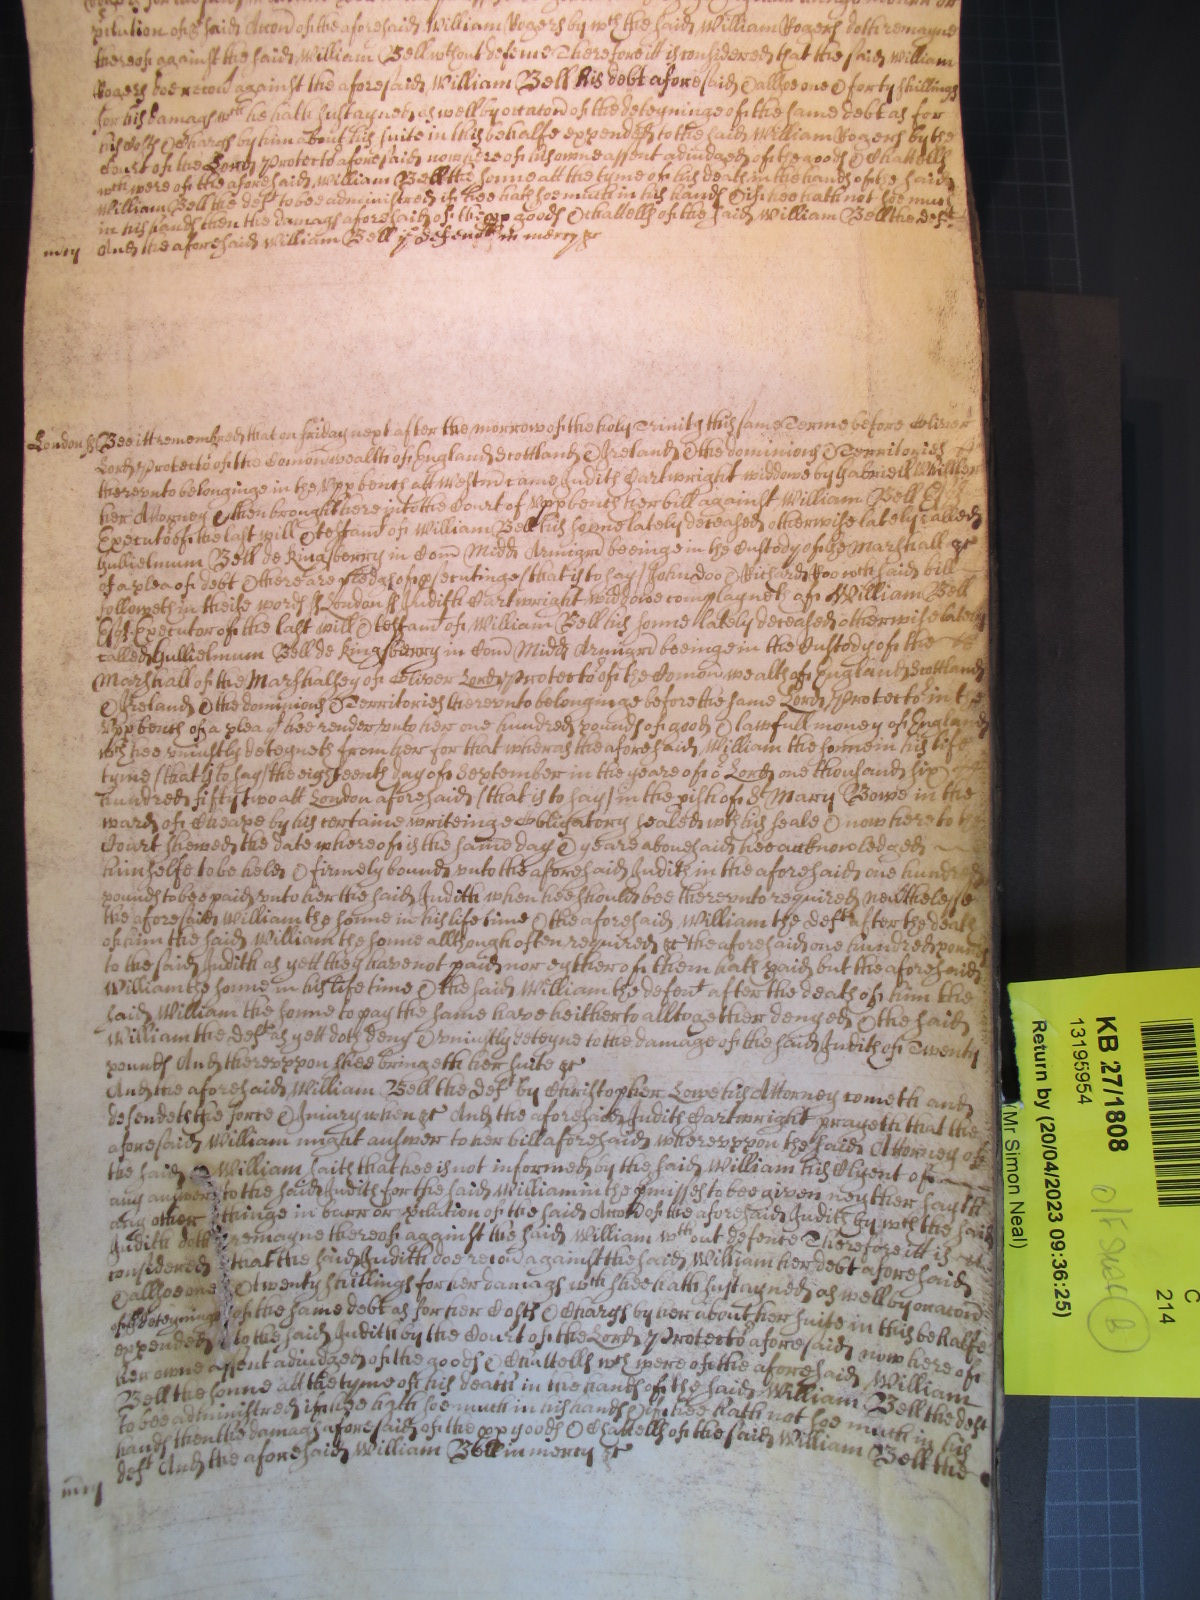 pitution of the said Accon of the aforesaid William Rogers by wch the said William Rogers doth remayne
thereof against the said William Bell without defence Therefore itt is considered that the said William
Rogers doe recoū against the aforesaid William Bell his debt aforesaid & allsoe one & forty shillings
for his damags wch he hath sustayned as well by occacon of the deteyninge of the same debt as for
his Costs & Chargs by him about his suite in this behalfe expended to the said William Rogers by the
Court of the Lord Protecto aforesaid now here of his owne assent adiudged of the goods & Chattells
wch were of the aforesaid William Bell the sonne att the tyme of his death in the hands of the said
William Bell the deft to be administred if hee hath soe much in his hands & if hee hath not soe much
in his hands then the damags aforesaid of the pp goods & chattells of the said William Bell the deft
m̄cy And the aforesaid William Bell ye defend in mercy &c
London ss Bee itt remembred that on friday next after the morrow of the holy Trinity this same Terme before Oliver
Lord Protectoʳ of the Comonwealth of England Scottland & Ireland & the dominions & Territories
therevnto belonginge in the Vpp bench att Westm̄ came Judith Cartwright widdowe by Gabriell
her Attorney & then brought here into the Court of Vpp bench her bill against William Bell Esqʳ
Executoʳ of the last will & testamᵗ of William Bell his sonne lately deceased otherwise lately called
Gullielmum Bell de Kingsberry in Com̄ Midd Armigrū beeinge in the Custody of the Marshall &c
of a plea of debt & there are pledgs of psecutinge (that is to say) John Doo & Richard Roo wch said bill
followeth in theise words ss London ss Judith Cartwright widdowe complayneth agt William Bell
Esqʳ Executor of the last will & testamᵗ of William Bell his sonne lately deceased otherwise lately
called Gullielmum Bell de Kingsberry in Com̄ Midd Armigrū beeinge in the Custody of the
Marshall of the Marshalsey of Oliver Lord Protectoʳ of the Comonwealth of England Scottland
& Ireland & the dominions & Territories therevnto belonginge before the same Lord Protectoʳ in the
Vpp bench of a plea yt hee render vnto her one hundred pounds of good & lawfull money of England
wch hee vniustly deteyneth from her for that wheras the aforesaid William the sonne in his life
tyme (that is to say) the eighteenth day of September in the yeare of oʳ Lord one thousand six
hundred fifty two att London aforesaid (that is to say) in the pish of St Mary Bowe in the
ward of Cheape by his certaine writeinge obligatory sealed wth his seale & now here to the
Court shewed the date whereof is the same day & yeare abouesaid hee acknowledged
himselfe to be held & firmely bound vnto the aforesaid Judith in the aforesaid one hundred
pounds to bee paid vnto her the said Judith when hee should bee therevnto required neuʳthelesse
the aforesaid William the sonne in his life time & the aforesaid William the deft after the death
of him the said William the sonne allthough often required &c the aforesaid one hundred pounds
to the said Judith as yett they have not paid nor eyther of them hath paid but the aforesaid
William the sonne in his life time & the said William the defent after the death of him the
said William the sonne to pay the same have heitherto alltogether denyed & the said
William the deft as yett doth deny & vniustly deteyne to the damage of the said Judith of Twenty
pounds And therevppon shee bringeth her suite &c
And the aforesaid William Bell the Deft by Christopher Lowe his Attorney cometh and
defendeth the force & Iniury when &c And the aforesaid Judith Cartwright prayeth that the
aforesaid William might answer to her bill aforesaid wherevppon the said Attorney of
the said William saith that hee is not informed by the said William his Clyent of
any answere to the said Judith for the said William in the pmisses to bee given neyther sayth
any other thinge in barr or pclution of the said Accon of the aforesaid Judith by wch the said
Judith doth remayne thereof against the said William wthout defence Therefore itt is
considered that the said Judith doe recoū against the said William her debt aforesaid
& allsoe one & twenty shillings for her damags wch shee hath sustayned as well by occacon
of the deteyninge of the same debt as for her Costs & Chargs by her about her suite in this behalfe
expended to the said Judith by the Court of the Lord Protectoʳ aforesaid now here of
her owne assent adiudged of the goods & Chattells wch were of the aforesaid William
Bell the sonne att the tyme of his death in the hands of the said William Bell the deft
to bee administred if hee hath soe much in his hands & if hee hath not soe much in his
hands then the damags aforesaid of the pp goods & Chattells of the said William Bell the
m̄cy deft And the aforesaid William Bell in mercy &c
KB 27/1808
13195954
Return by (20/04/2023 09:36:25)
(Mr Simon Neal)
C
214
B